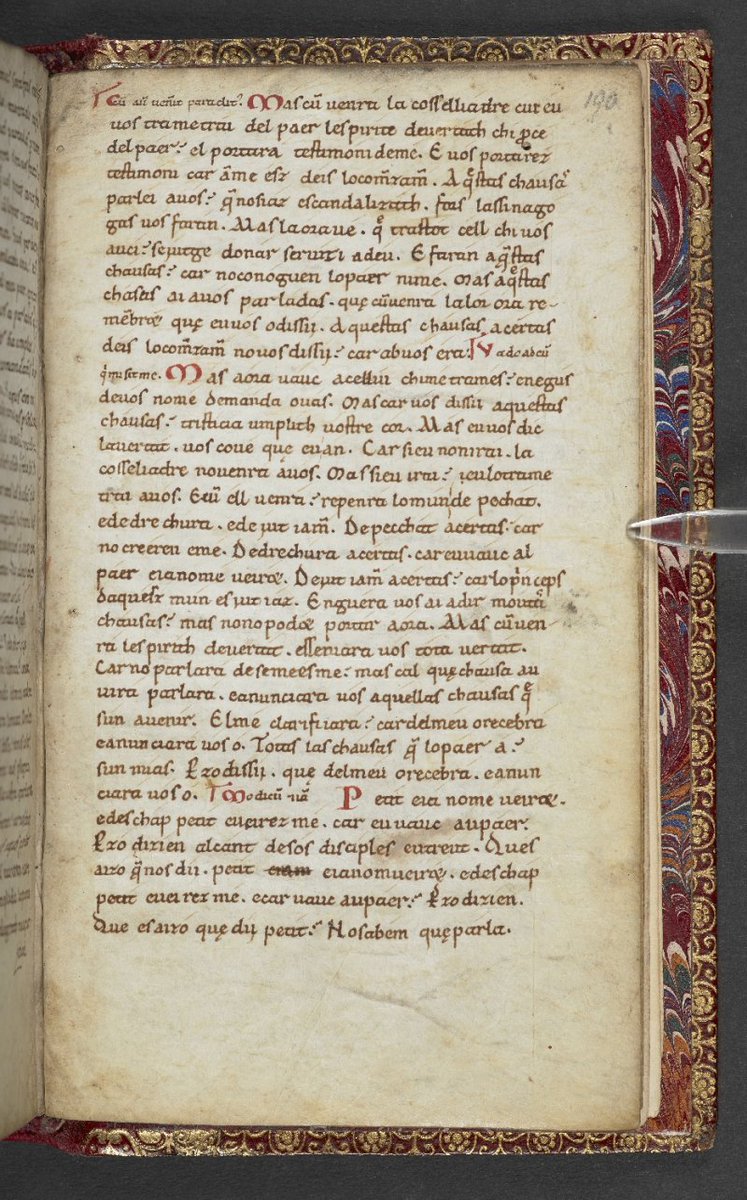 Cū aūt venerit paraclit᛬ Mas cū venra la cosselliadre cui eu 190
vos trametrai del paer lespirite devertath chi ꝓce
del paer᛬ el portara testimoni de me. E vos portarez
testimoni car ā me esz deis lo com̄zam̄. Aq̄stas chausas
parlei a vos᛬ q̄ no siaz escandalizath. fors las sinago
gas vos faran. Mas la ora ve. q̄ trastot cell chi vos
auci᛬ se pitge donar servizi a deu. E faran aq̄stas
chausas᛬ car no conoguen lo paer ni me. Mas aq̄stas
chosas ai a vos parladas. quę cū venra la lor ora re-
mēbręe quę eu vos o dissii. Aquestas chausas acertas
deis lo com̄zam̄ no vos dissii᛬ car ab vos era. Vado ad eū
q̄ misit me. Mas aora vauc a cellui chi me trames᛬ e negus
de vos no me demanda o vas. Mas car vos dissii aquestas
chausas᛬ tristicia umplith vostre cor. Mas eu vos dic
la vertat. vos cove quę eu an. Car si eu no n irai. la
cosseliadre no venra a vos. Mas si eu irai᛬ ieu lo trame
trai a vos. E cū ell venra᛬ repenra lo munde pechat.
e de drechura. e de jutiam̄. De pecchat acertas᛬ car
no creeren e me. De drechura acertas. car eu vauc al
paer e ia no me veirę. De jutiam̄ acertas᛬ car lo p̄nceps
daquest mun es jutiaz. Enguera vos ai a dir moutas
chausas᛬ mas non o podę portar aora. Mas cū ven
ra lespirith devertat. esseniara vos tota vertat.
Car no parlara de semeesme᛬ mas cal quę chausa au
vira parlara. e anunciara vos aquellas chausas q̄
sun avenir. El me clarifiiara᛬ car del meu o recebra
e anunciara vos o. Totas las chausas q̄ lo paer a᛬
sun mias. Ꝑzo dissii. quę del meu o recebra. e anun
ciara vos o. Modicū Petit e ia no me veirę.
e deschap petit e veirez me. car eu vauc au paer.
Ꝑzo dizien alcant de sos disciples entreut. Ques
aizo q̄ nos dii. petit e ia no m veirę. e deschap
petit e veirez me. e car vauc au paer᛬ Ꝑzo dizien.
Que es aizo quę dii petit᛬ No sabem quę parla.